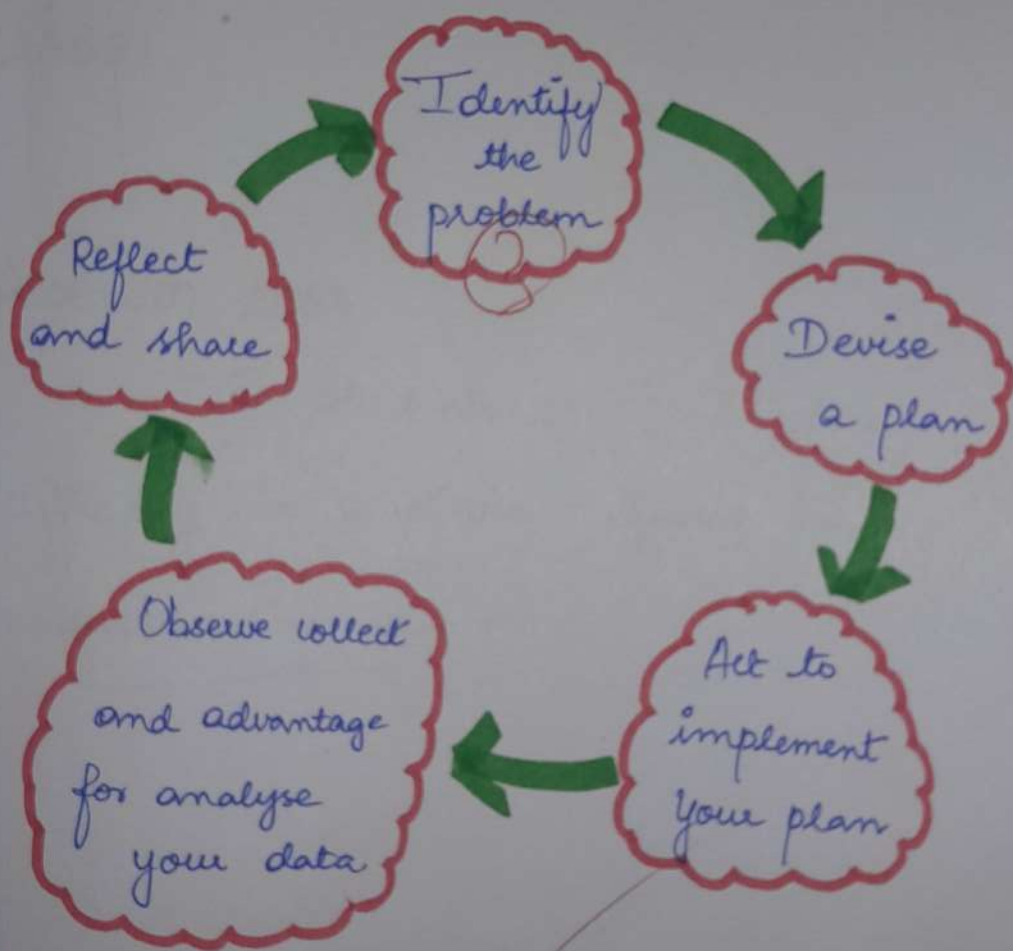 Identify
the
problem
Devise
a plan
Act to
implement
your plan
Observe collect
and advantage
for analyse
your data
Reflect
and share